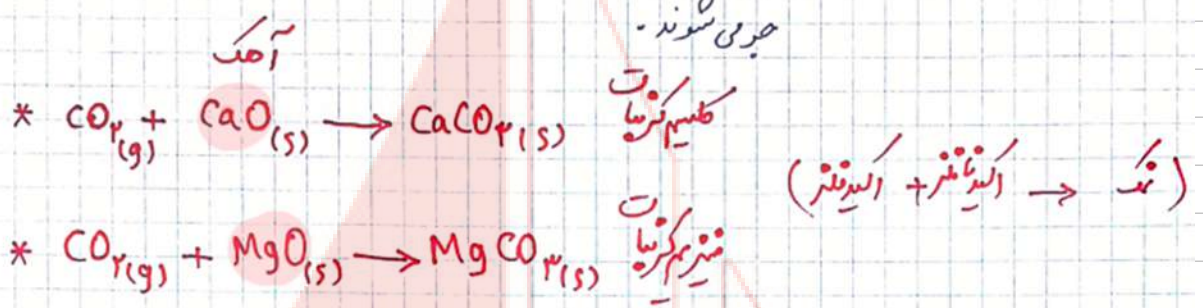 جو می شوند.
آهک
* CO₂(g) + CaO(s) → CaCO₃(s) کلسیم کربنات
(اکسید فلز + اکسید نافلز → نمک)
* CO₂(g) + MgO(s) → MgCO₃(s) منیزیم کربنات